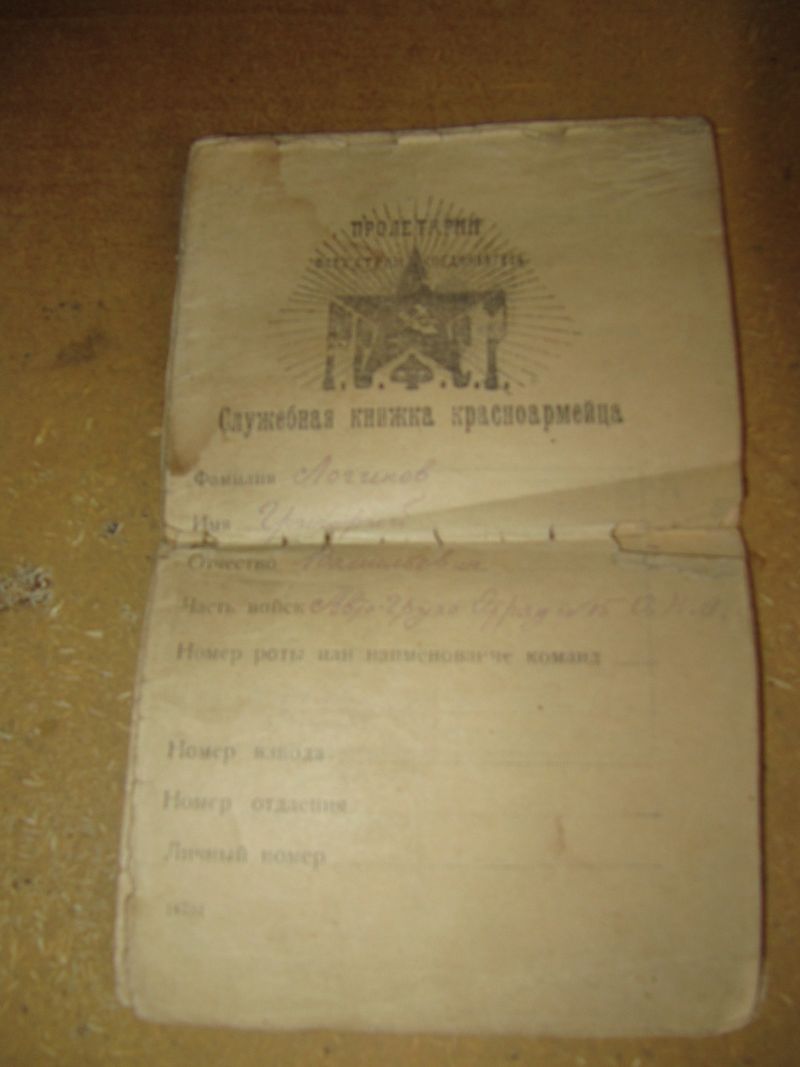 ПРОЛЕТАРИИ
ВСЕХ СТРАН СОЕДИНЯЙТЕСЬ
Р.С.Ф.С.Р.
Служебная книжка красноармейца
Фамилия Логинов
Имя Григорий
Отчество
Часть войск
Номер роты или наименование команд
Номер взвода
Номер отдаения
Личный номер